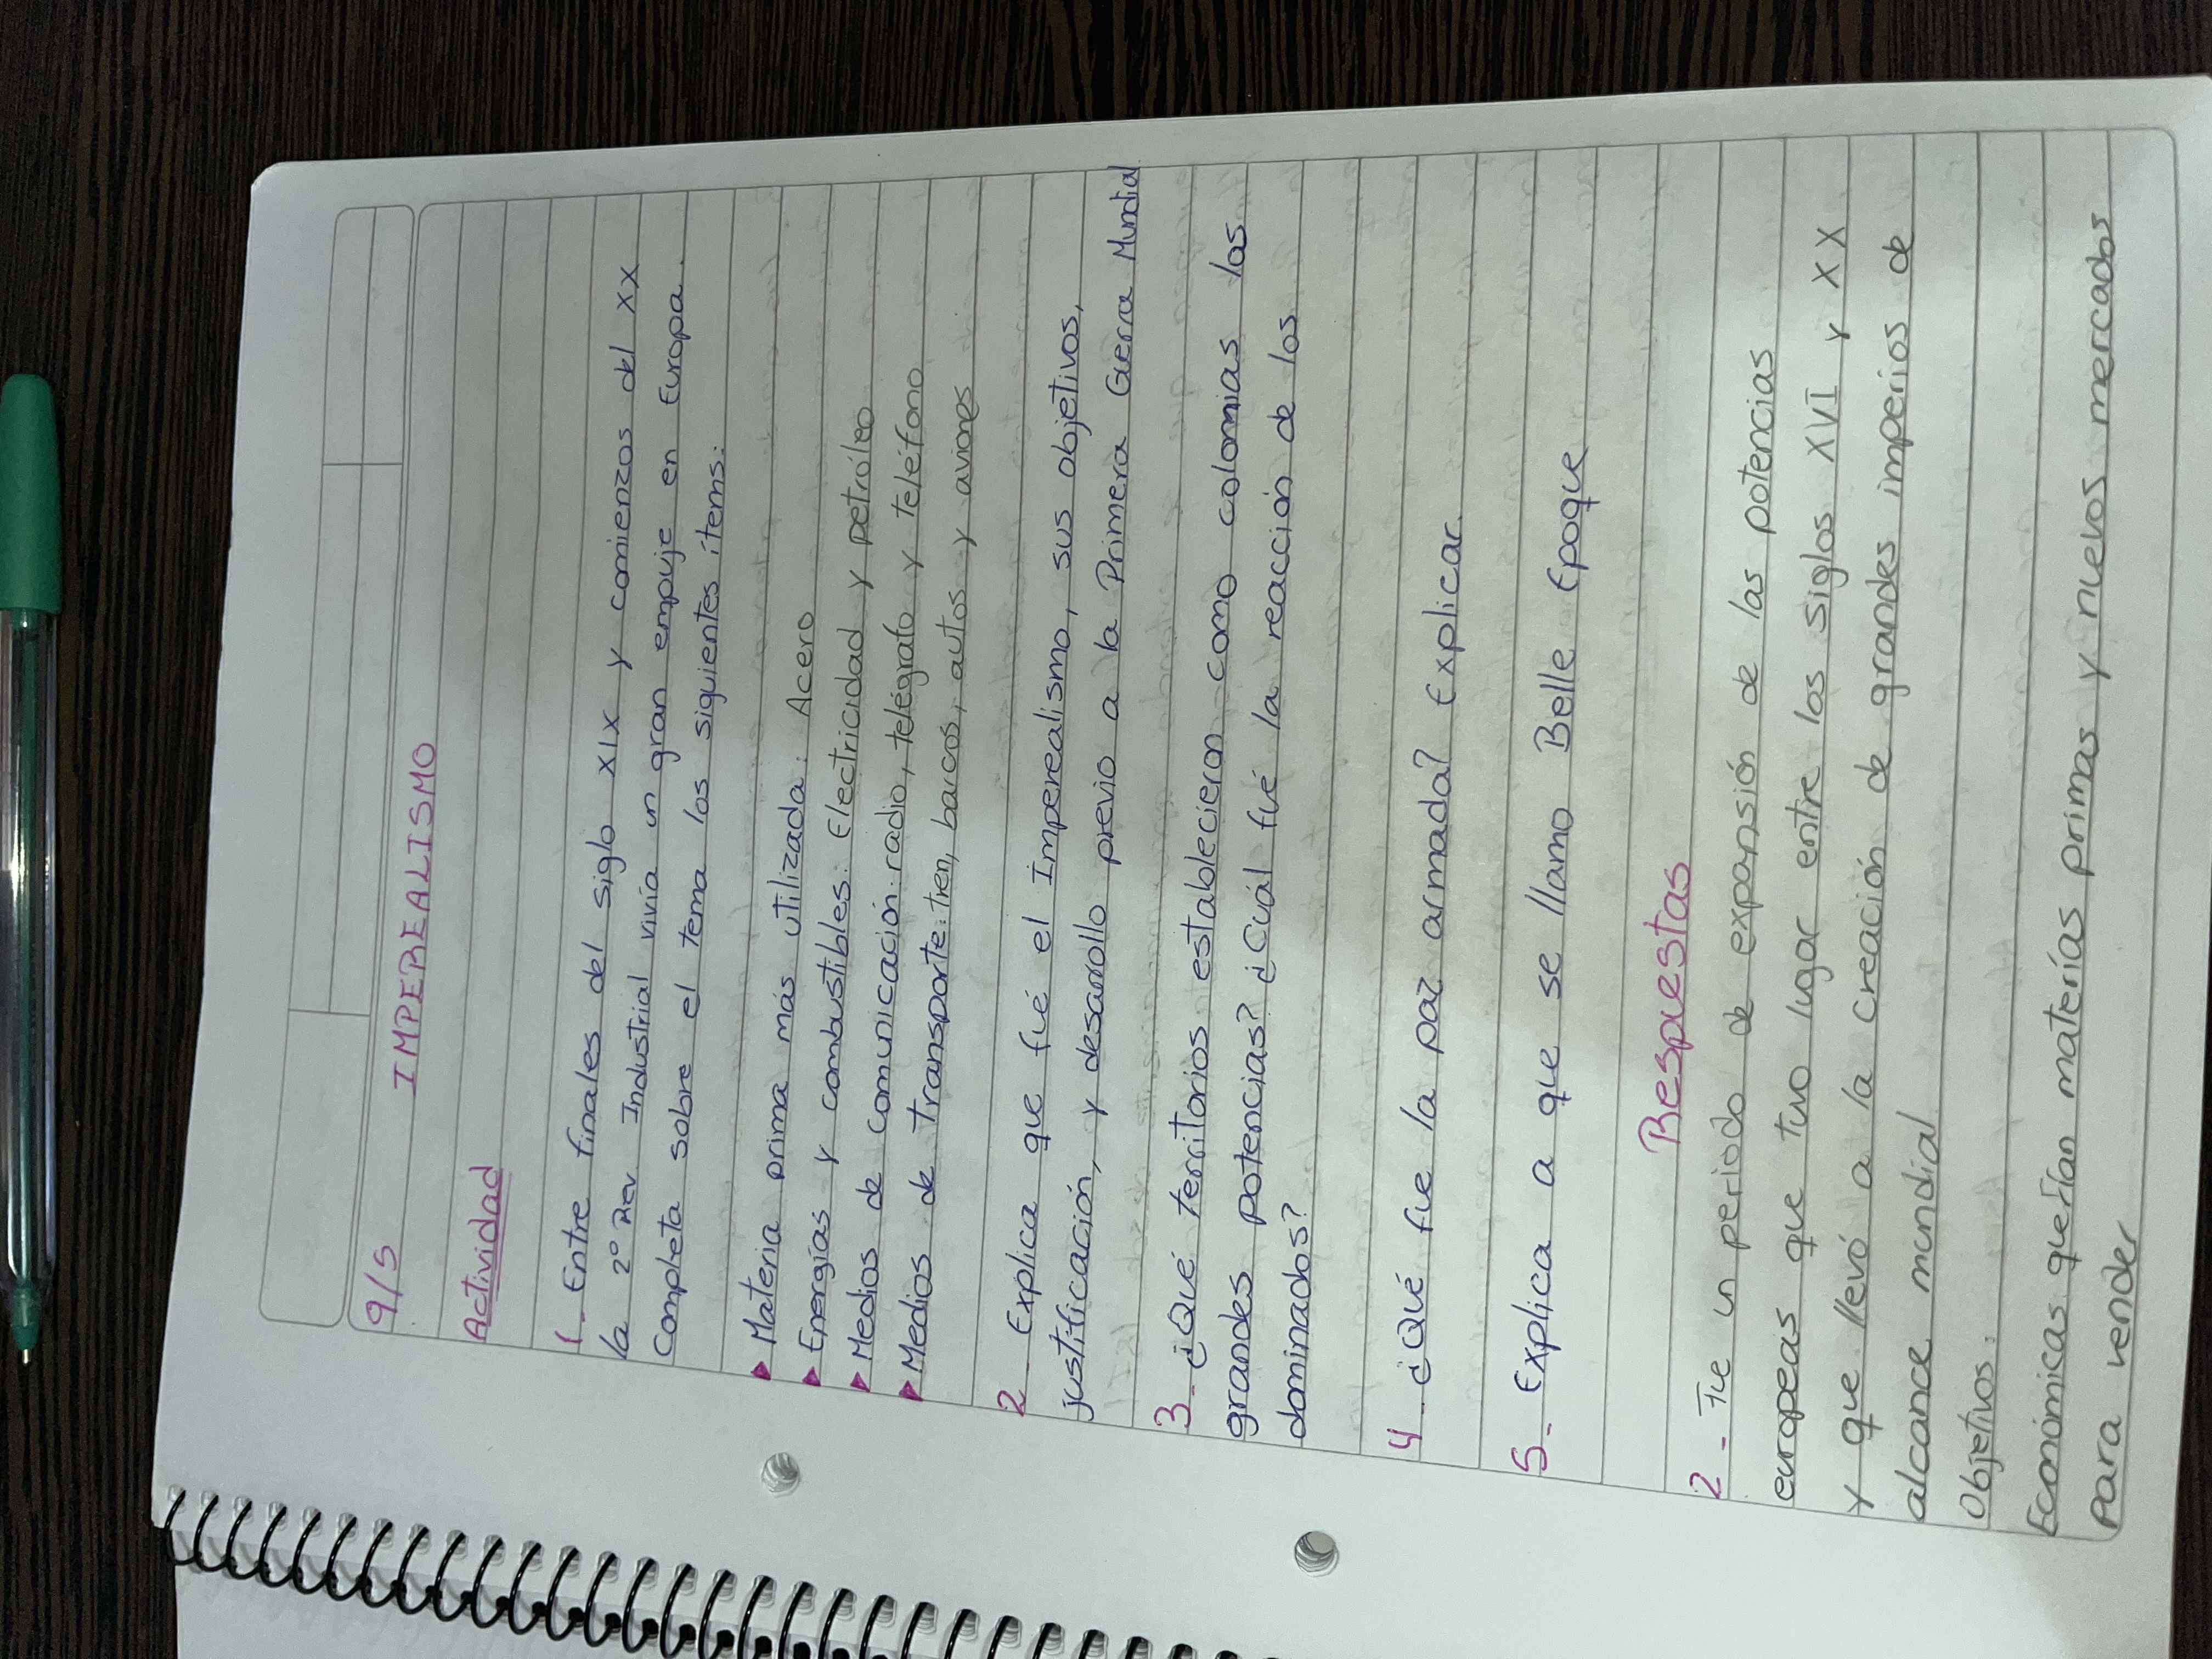 9/5
IMPEREALISMO
Actividad
1_ Entre finales del siglo XIX y comienzos del XX
la 2º Rev Industrial vivía un gran empuje en Europa.
Completa sobre el tema los siguientes ítems:
▶ Materia prima más utilizada: Acero
▶ Energías y combustibles: Electricidad y petróleo
▶ Medios de comunicación: radio, telégrafo y teléfono
▶ Medios de transporte: tren, barcos, autos y aviones
2_ Explica que fué el Imperealismo, sus objetivos,
justificación, y desarollo previo a la Primera Guerra Mundial
3_ ¿Qué territorios establecieron como colomias los
grandes potencias? ¿Cuál fué la reacción de los
dominados?
4_ ¿Qué fue la paz armada? Explicar.
5_ Explica a que se llamo Belle Epoque
Respuestas
2_ Fue un periodo de expansión de las potencias
europeas que tuvo lugar entre los siglos XVI y XX
y que llevó a la creación de grandes imperios de
alcance mundial
Objetivos:
Económicas querían materías primas y nuevos mercados
para vender